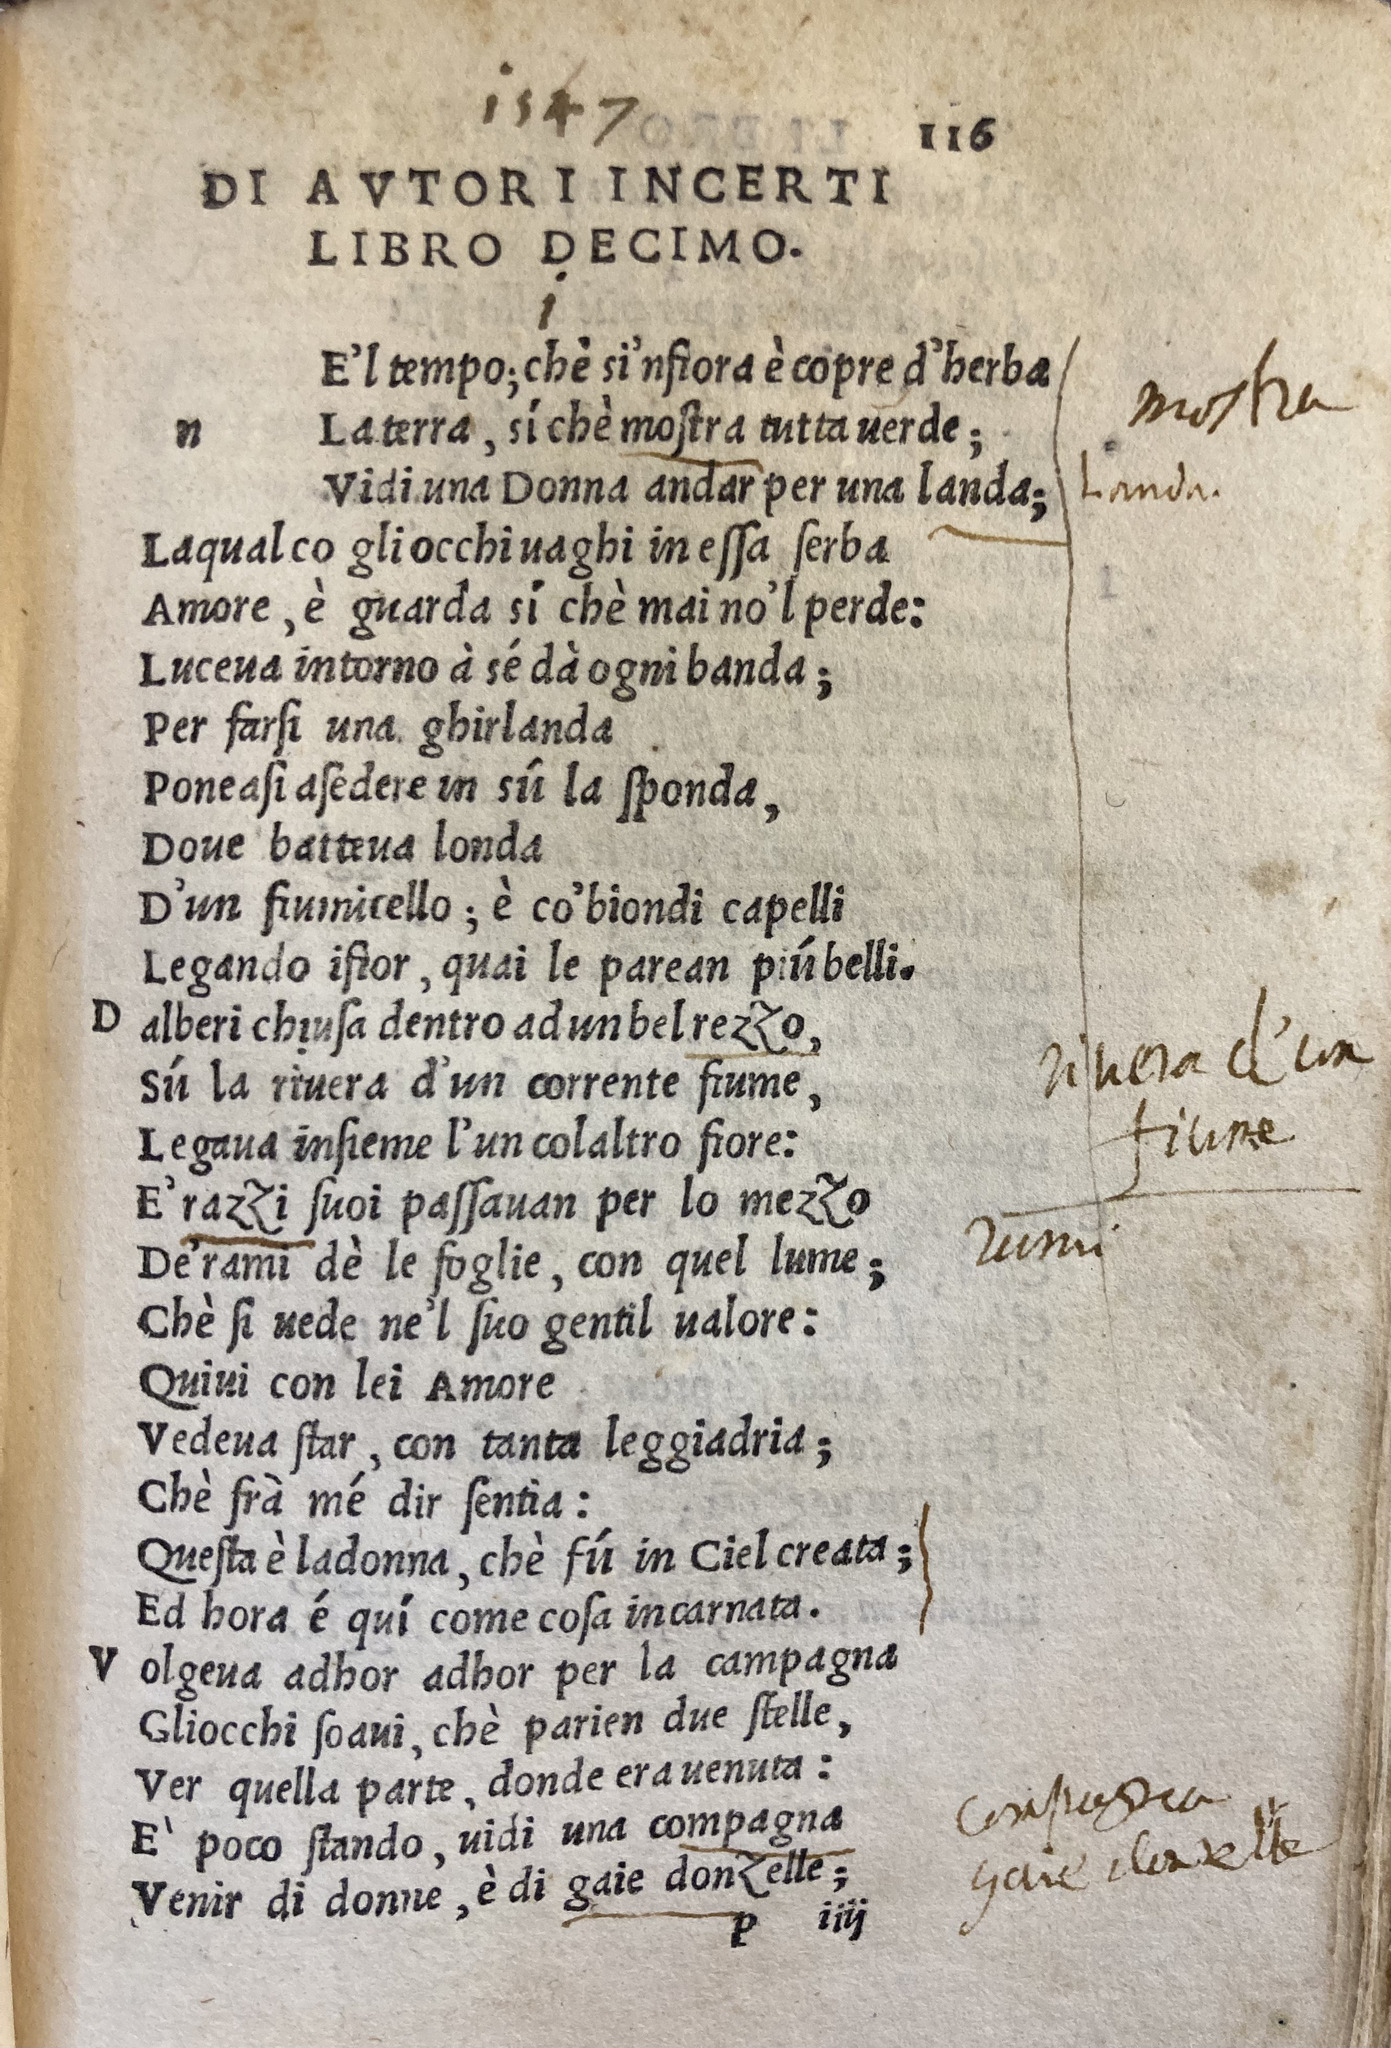 1547
116
DI AVTORI INCERTI
LIBRO DECIMO.
i
E'l tempo; chè si'nfiora è copre d'herba
n La terra, sí chè moſtra tutta uerde;
mostra
Vidi una Donna andar per una landa;
Landa.
Laqual co gliocchi uaghi in eſſa ſerba
Amore, è guarda sí chè mai no'l perde:
Luceua intorno à sé dà ogni banda;
Per farſi una ghirlanda
Poneaſi aſedere in sú la ſponda,
Doue batteua londa
D'un fiumicello; è co'biondi capelli
Legando ifior, quai le parean piú belli.
D alberi chiuſa dentro ad un bel rezzo,
Sú la riuera d'un corrente fiume,
riuera d'un
fiume
Legaua inſieme l'un colaltro fiore:
E' razzi ſuoi paſſauan per lo mezzo
De'rami dè le foglie, con quel lume;
Chè ſi uede ne'l ſuo gentil ualore:
Quiui con lei Amore
Vedeua ſtar, con tanta leggiadria;
Chè frà mé dir ſentia:
Queſta è ladonna, chè fú in Ciel creata;
Ed hora é quí come coſa incarnata.
V olgeua adhor adhor per la campagna
Gliocchi ſoaui, chè parien due ſtelle,
Ver quella parte, donde era uenuta:
E' poco ſtando, uidi una compagna
compagna
Venir di donne, è di gaie donzelle;
gaie donzelle
p iiij